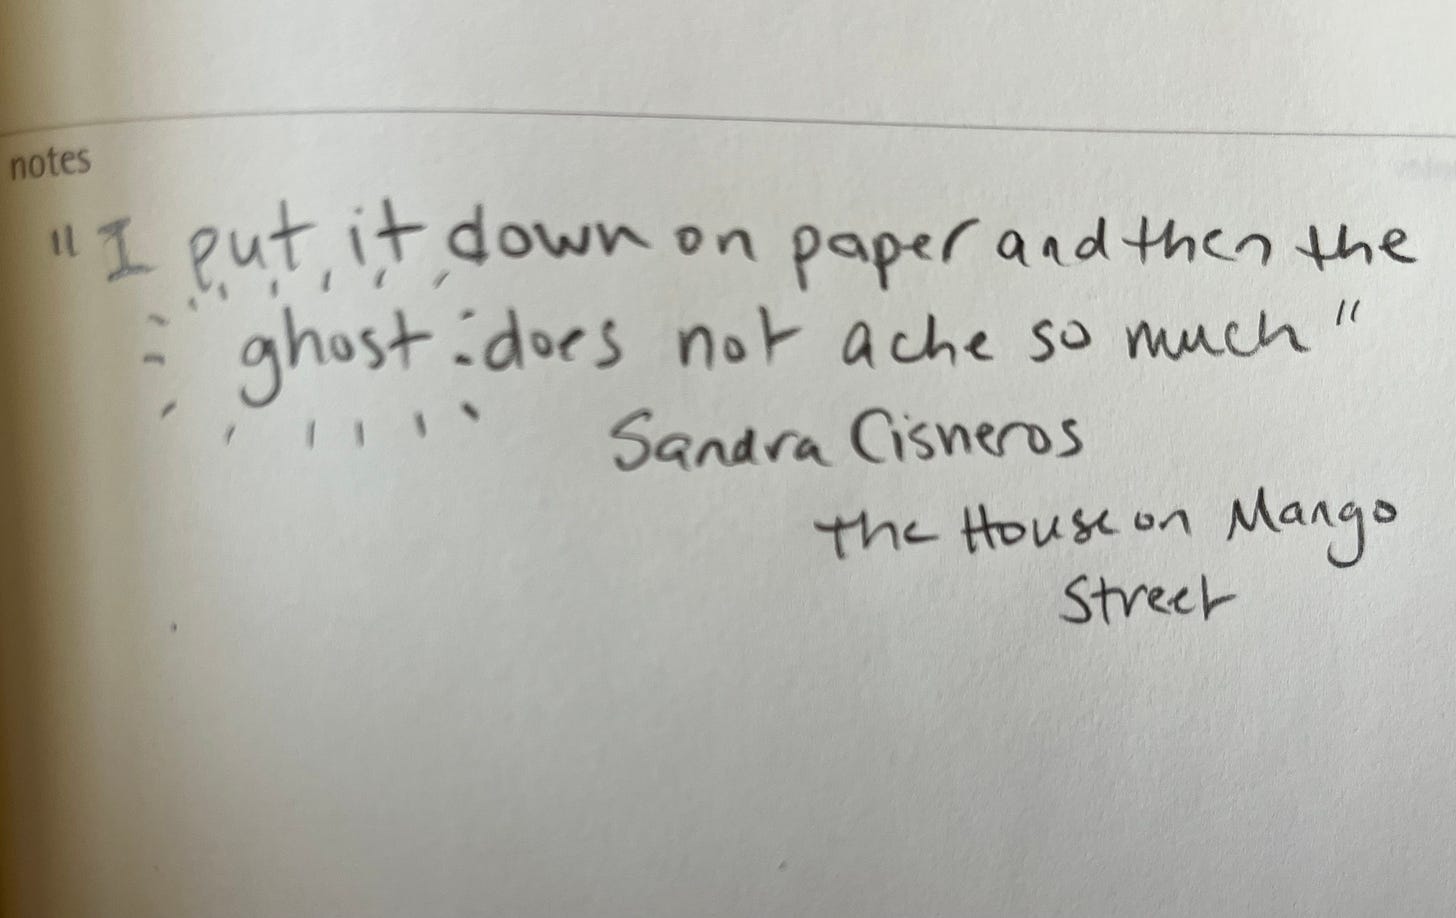 notes
"I put it down on paper and then the
ghost does not ache so much"
Sandra Cisneros
the House on Mango
Street